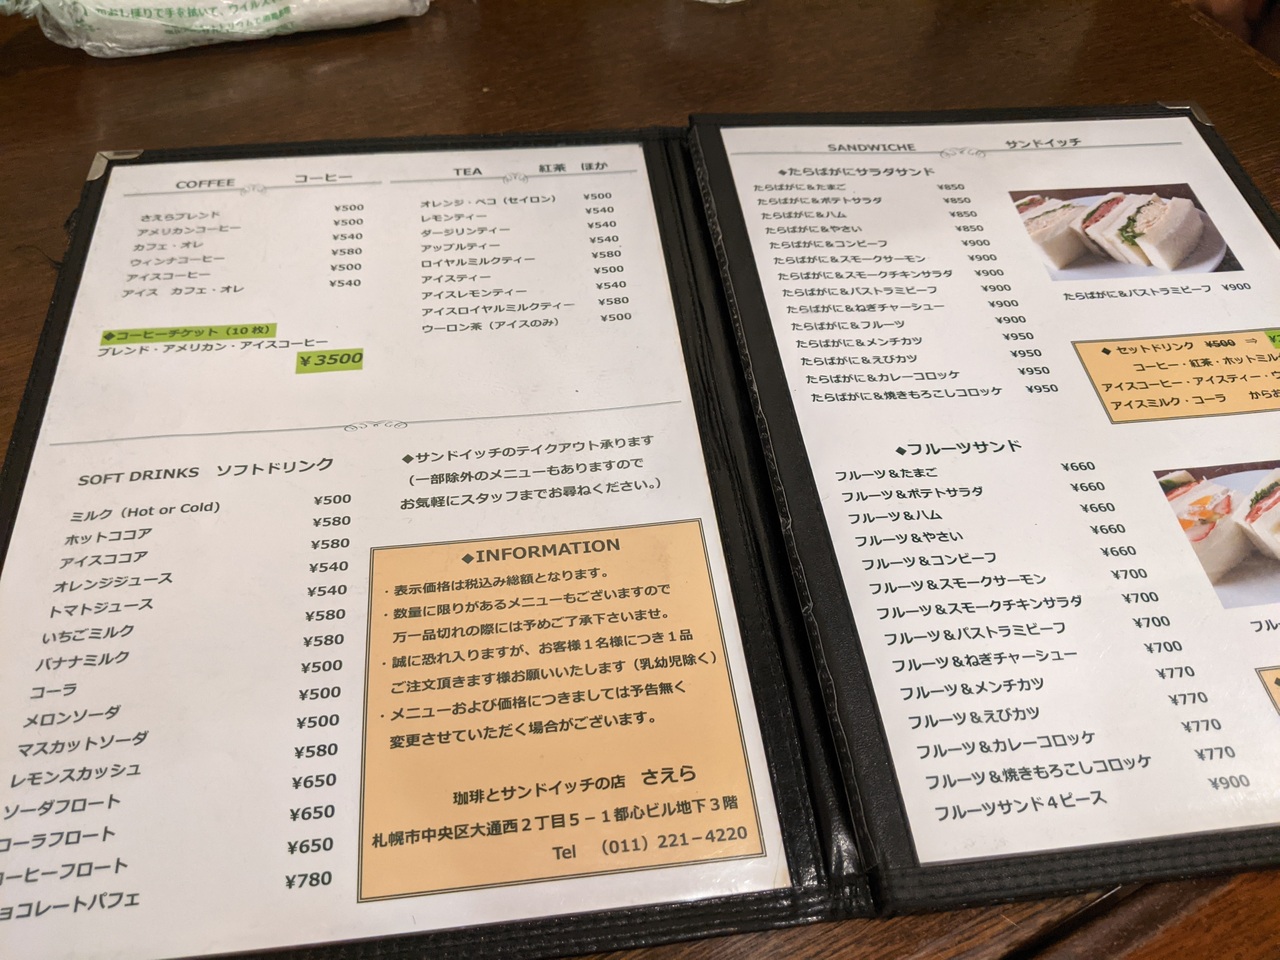 おしぼりで手を拭いて、ウイルス
COFFEE コーヒー
さえらブレンド ¥500
アメリカンコーヒー ¥500
カフェ・オレ ¥540
ウィンナコーヒー ¥580
アイスコーヒー ¥500
アイス カフェ・オレ ¥540
◆コーヒーチケット（10枚）
ブレンド・アメリカン・アイスコーヒー
¥3500
TEA 紅茶 ほか
オレンジ・ペコ（セイロン） ¥500
レモンティー ¥540
ダージリンティー ¥540
アップルティー ¥540
ロイヤルミルクティー ¥580
アイスティー ¥500
アイスレモンティー ¥540
アイスロイヤルミルクティー ¥580
ウーロン茶（アイスのみ） ¥500
SOFT DRINKS ソフトドリンク
ミルク（Hot or Cold） ¥500
ホットココア ¥580
アイスココア ¥580
オレンジジュース ¥540
トマトジュース ¥540
いちごミルク ¥580
バナナミルク ¥580
コーラ ¥500
メロンソーダ ¥500
マスカットソーダ ¥500
レモンスカッシュ ¥580
ソーダフロート ¥650
コーラフロート ¥650
コーヒーフロート ¥650
ョコレートパフェ ¥780
◆サンドイッチのテイクアウト承ります
（一部除外のメニューもありますので
お気軽にスタッフまでお尋ねください。）
◆INFORMATION
・表示価格は税込み総額となります。
・数量に限りがあるメニューもございますので
万一品切れの際には予めご了承下さいませ。
・誠に恐れ入りますが、お客様１名様につき１品
ご注文頂きます様お願いいたします（乳幼児除く）
・メニューおよび価格につきましては予告無く
変更させていただく場合がございます。
珈琲とサンドイッチの店 さえら
札幌市中央区大通西２丁目５－１都心ビル地下３階
Tel （011）221－4220
SANDWICHE サンドイッチ
◆たらばがにサラダサンド
たらばがに＆たまご ¥850
たらばがに＆ポテトサラダ ¥850
たらばがに＆ハム ¥850
たらばがに＆やさい ¥850
たらばがに＆コンビーフ ¥900
たらばがに＆スモークサーモン ¥900
たらばがに＆スモークチキンサラダ ¥900
たらばがに＆パストラミビーフ ¥900
たらばがに＆ねぎチャーシュー ¥900
たらばがに＆フルーツ ¥900
たらばがに＆メンチカツ ¥950
たらばがに＆えびカツ ¥950
たらばがに＆カレーコロッケ ¥950
たらばがに＆焼きもろこしコロッケ ¥950
たらばがに＆パストラミビーフ ¥900
◆ セットドリンク ¥500 ⇒
コーヒー・紅茶・ホットミル
アイスコーヒー・アイスティー・ウ
アイスミルク・コーラ からお
◆フルーツサンド
フルーツ＆たまご ¥660
フルーツ＆ポテトサラダ ¥660
フルーツ＆ハム ¥660
フルーツ＆やさい ¥660
フルーツ＆コンビーフ ¥660
フルーツ＆スモークサーモン ¥700
フルーツ＆スモークチキンサラダ ¥700
フルーツ＆パストラミビーフ ¥700
フルーツ＆ねぎチャーシュー ¥700
フルーツ＆メンチカツ ¥770
フルーツ＆えびカツ ¥770
フルーツ＆カレーコロッケ ¥770
フルーツ＆焼きもろこしコロッケ ¥770
フルーツサンド４ピース ¥900
フル